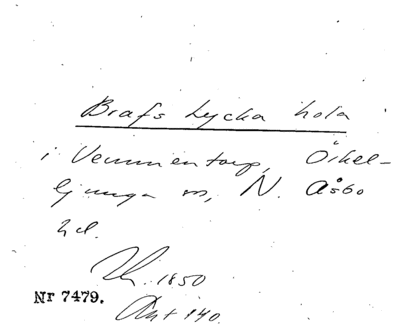 Brafs Lycka hola
i Vemmentorp, Örkel-
ljunga sn, N. Åsbo
hd.
1850
Nr 7479. Ant 140.